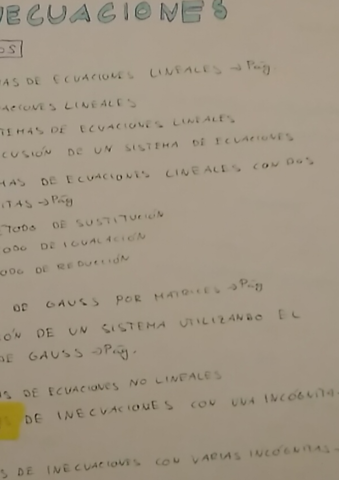 ECUACIONES
OS
AS DE ECUACIONES LINEALES → Pág.
ACIONES LINEALES
TEMAS DE ECUACIONES LINEALES
CUSIÓN DE UN SISTEMA DE ECUACIONES
MAS DE ECUACIONES LINEALES CON DOS
ITAS → Pág
ÉTODO DE SUSTITUCIÓN
ODO DE IGUALACIÓN
ODO DE REDUCCIÓN
DE GAUSS POR MATRICES → Pág
ÓN DE UN SISTEMA UTILIZANDO EL
DE GAUSS → Pág.
S DE ECUACIONES NO LINEALES
DE INECUACIONES CON UNA INCÓGNITA
S DE INECUACIONES CON VARIAS INCÓGNITAS